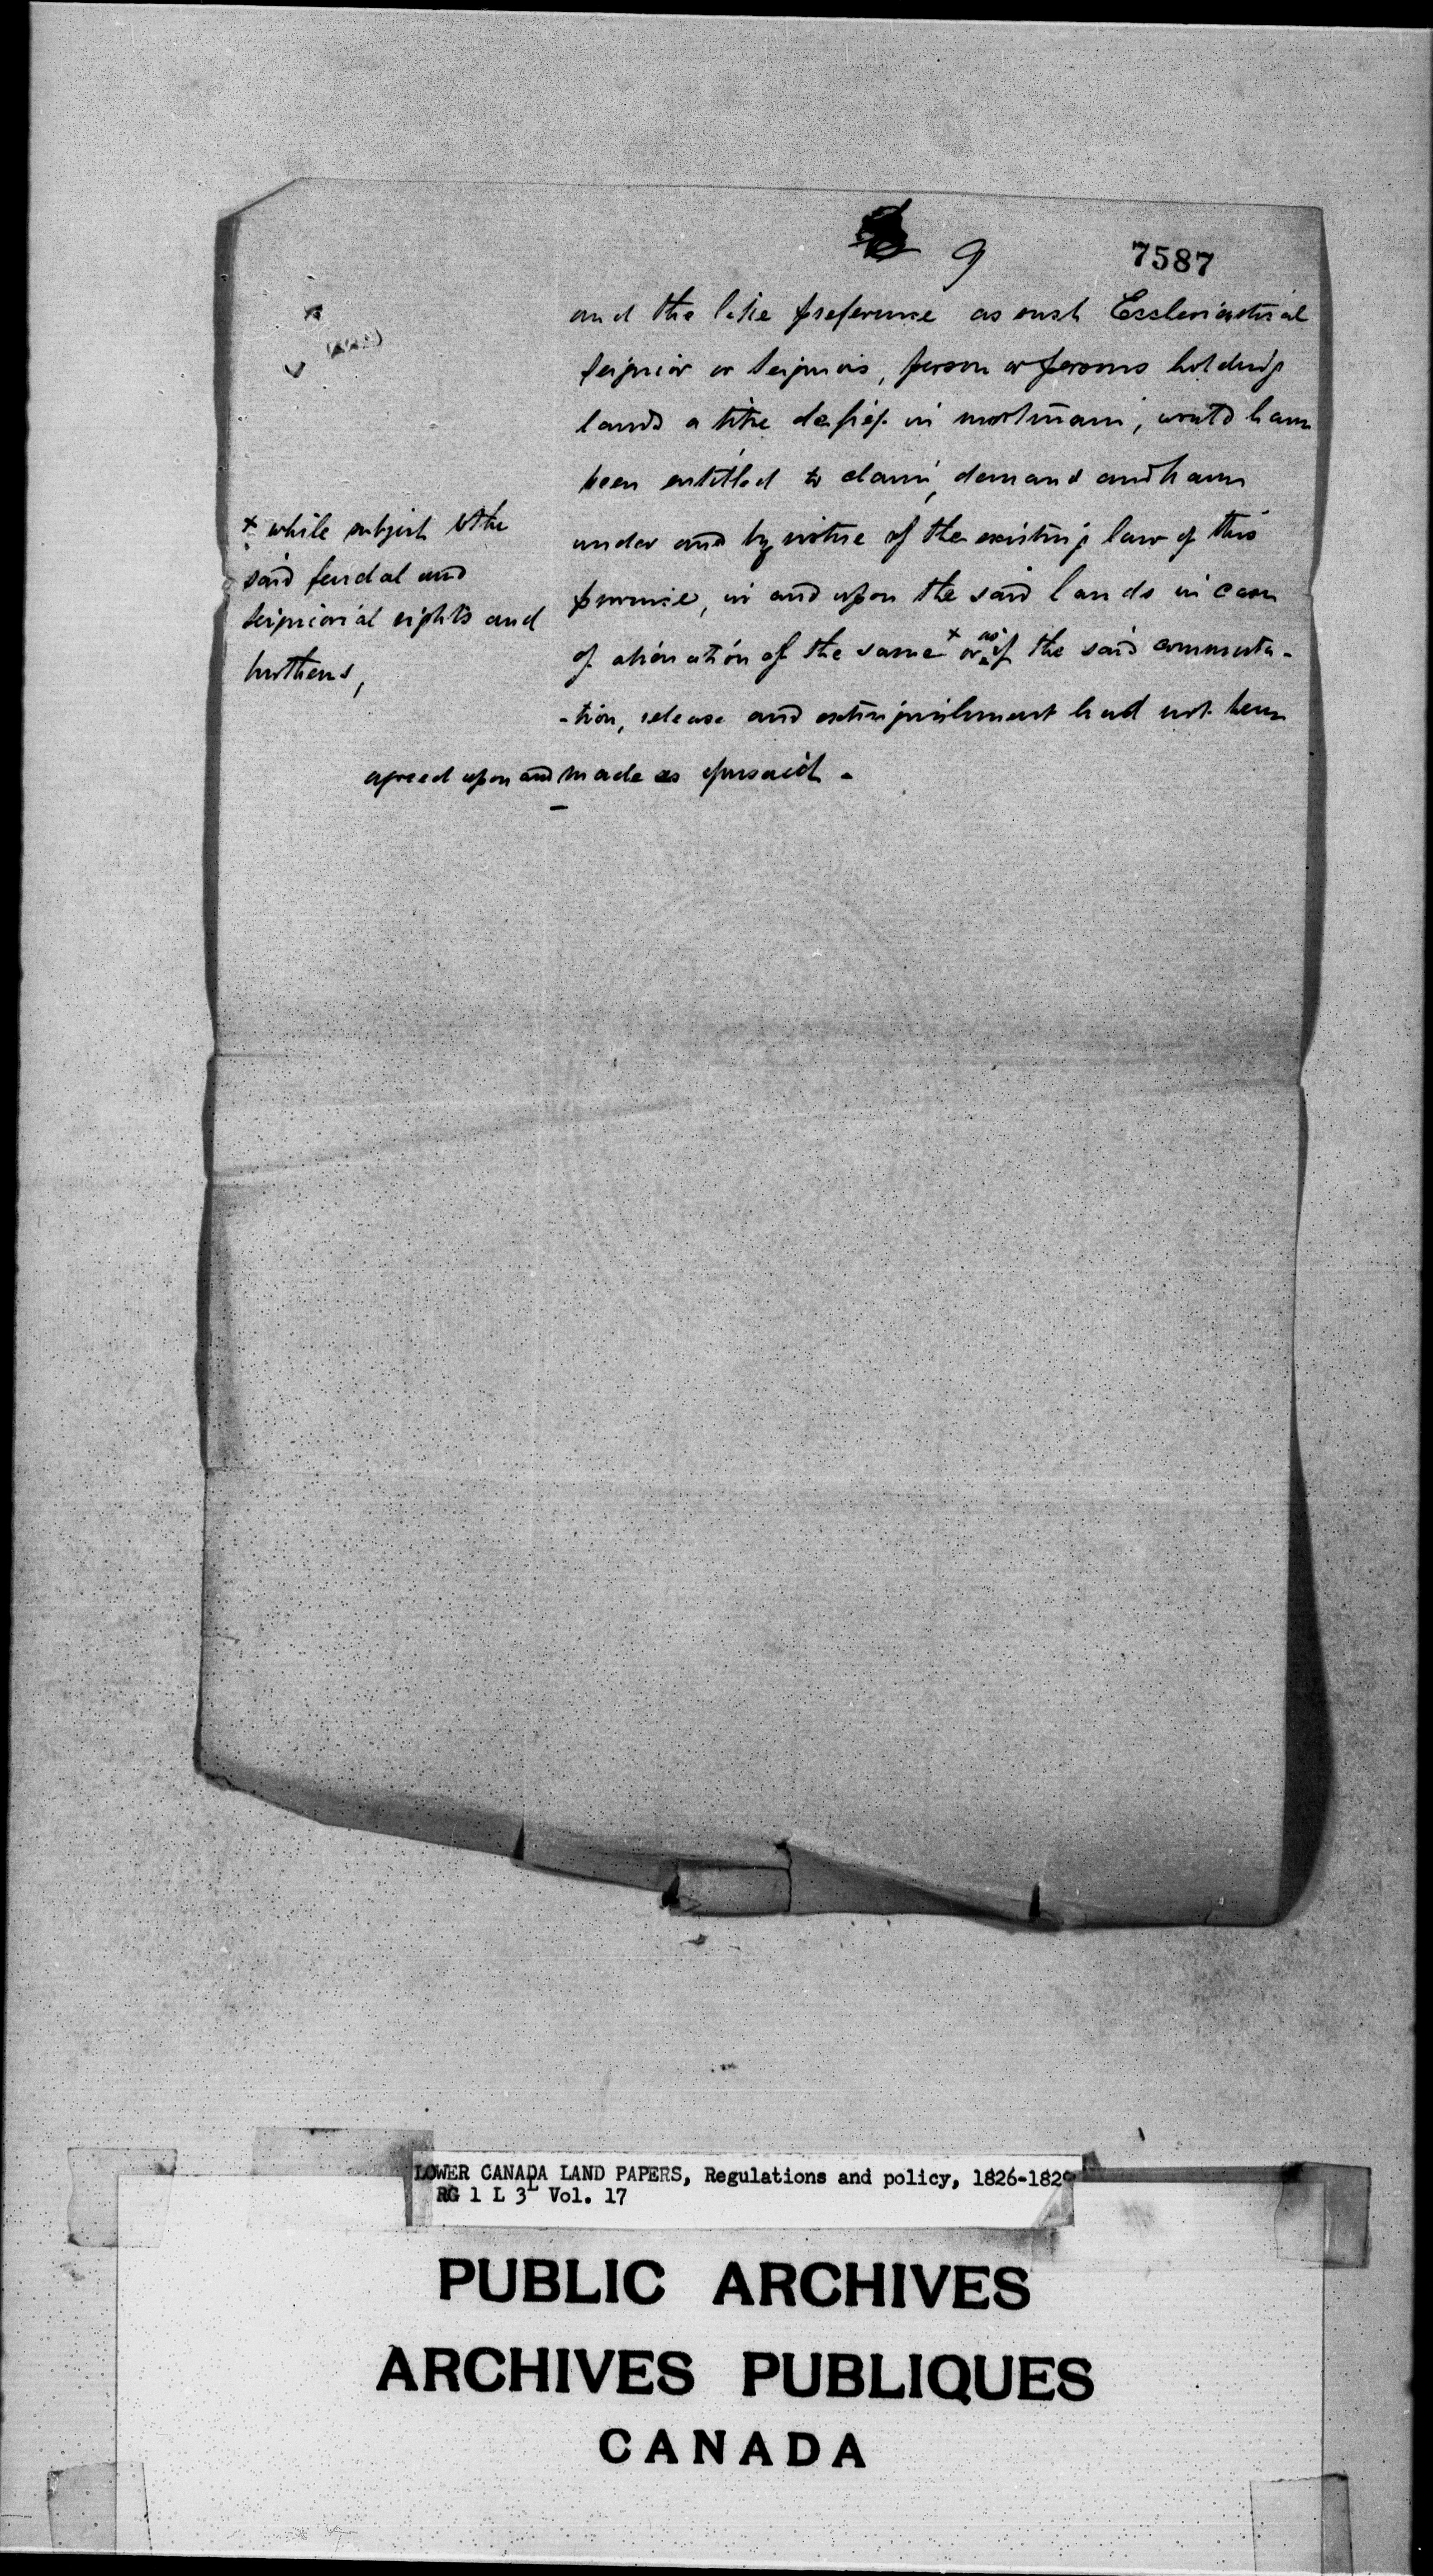 9
7587
and the like preference as such Ecclesiastical
seignior or seigniors, person or persons holding
lands a titre de fief in mortmain, would have
been entitled to claim, demand and have
under and by virtue of the existing law of this
province, in and upon the said lands in case
of alienation of the same x or as if the said commuta-
-tion, release and extinguishment had not been
agreed upon and made as aforesaid -
x while subject to the
said feudal and
seigniorial rights and
burthens,
LOWER CANADA LAND PAPERS, Regulations and policy, 1826-1829
RG 1 L 3L Vol. 17
PUBLIC ARCHIVES
ARCHIVES PUBLIQUES
CANADA